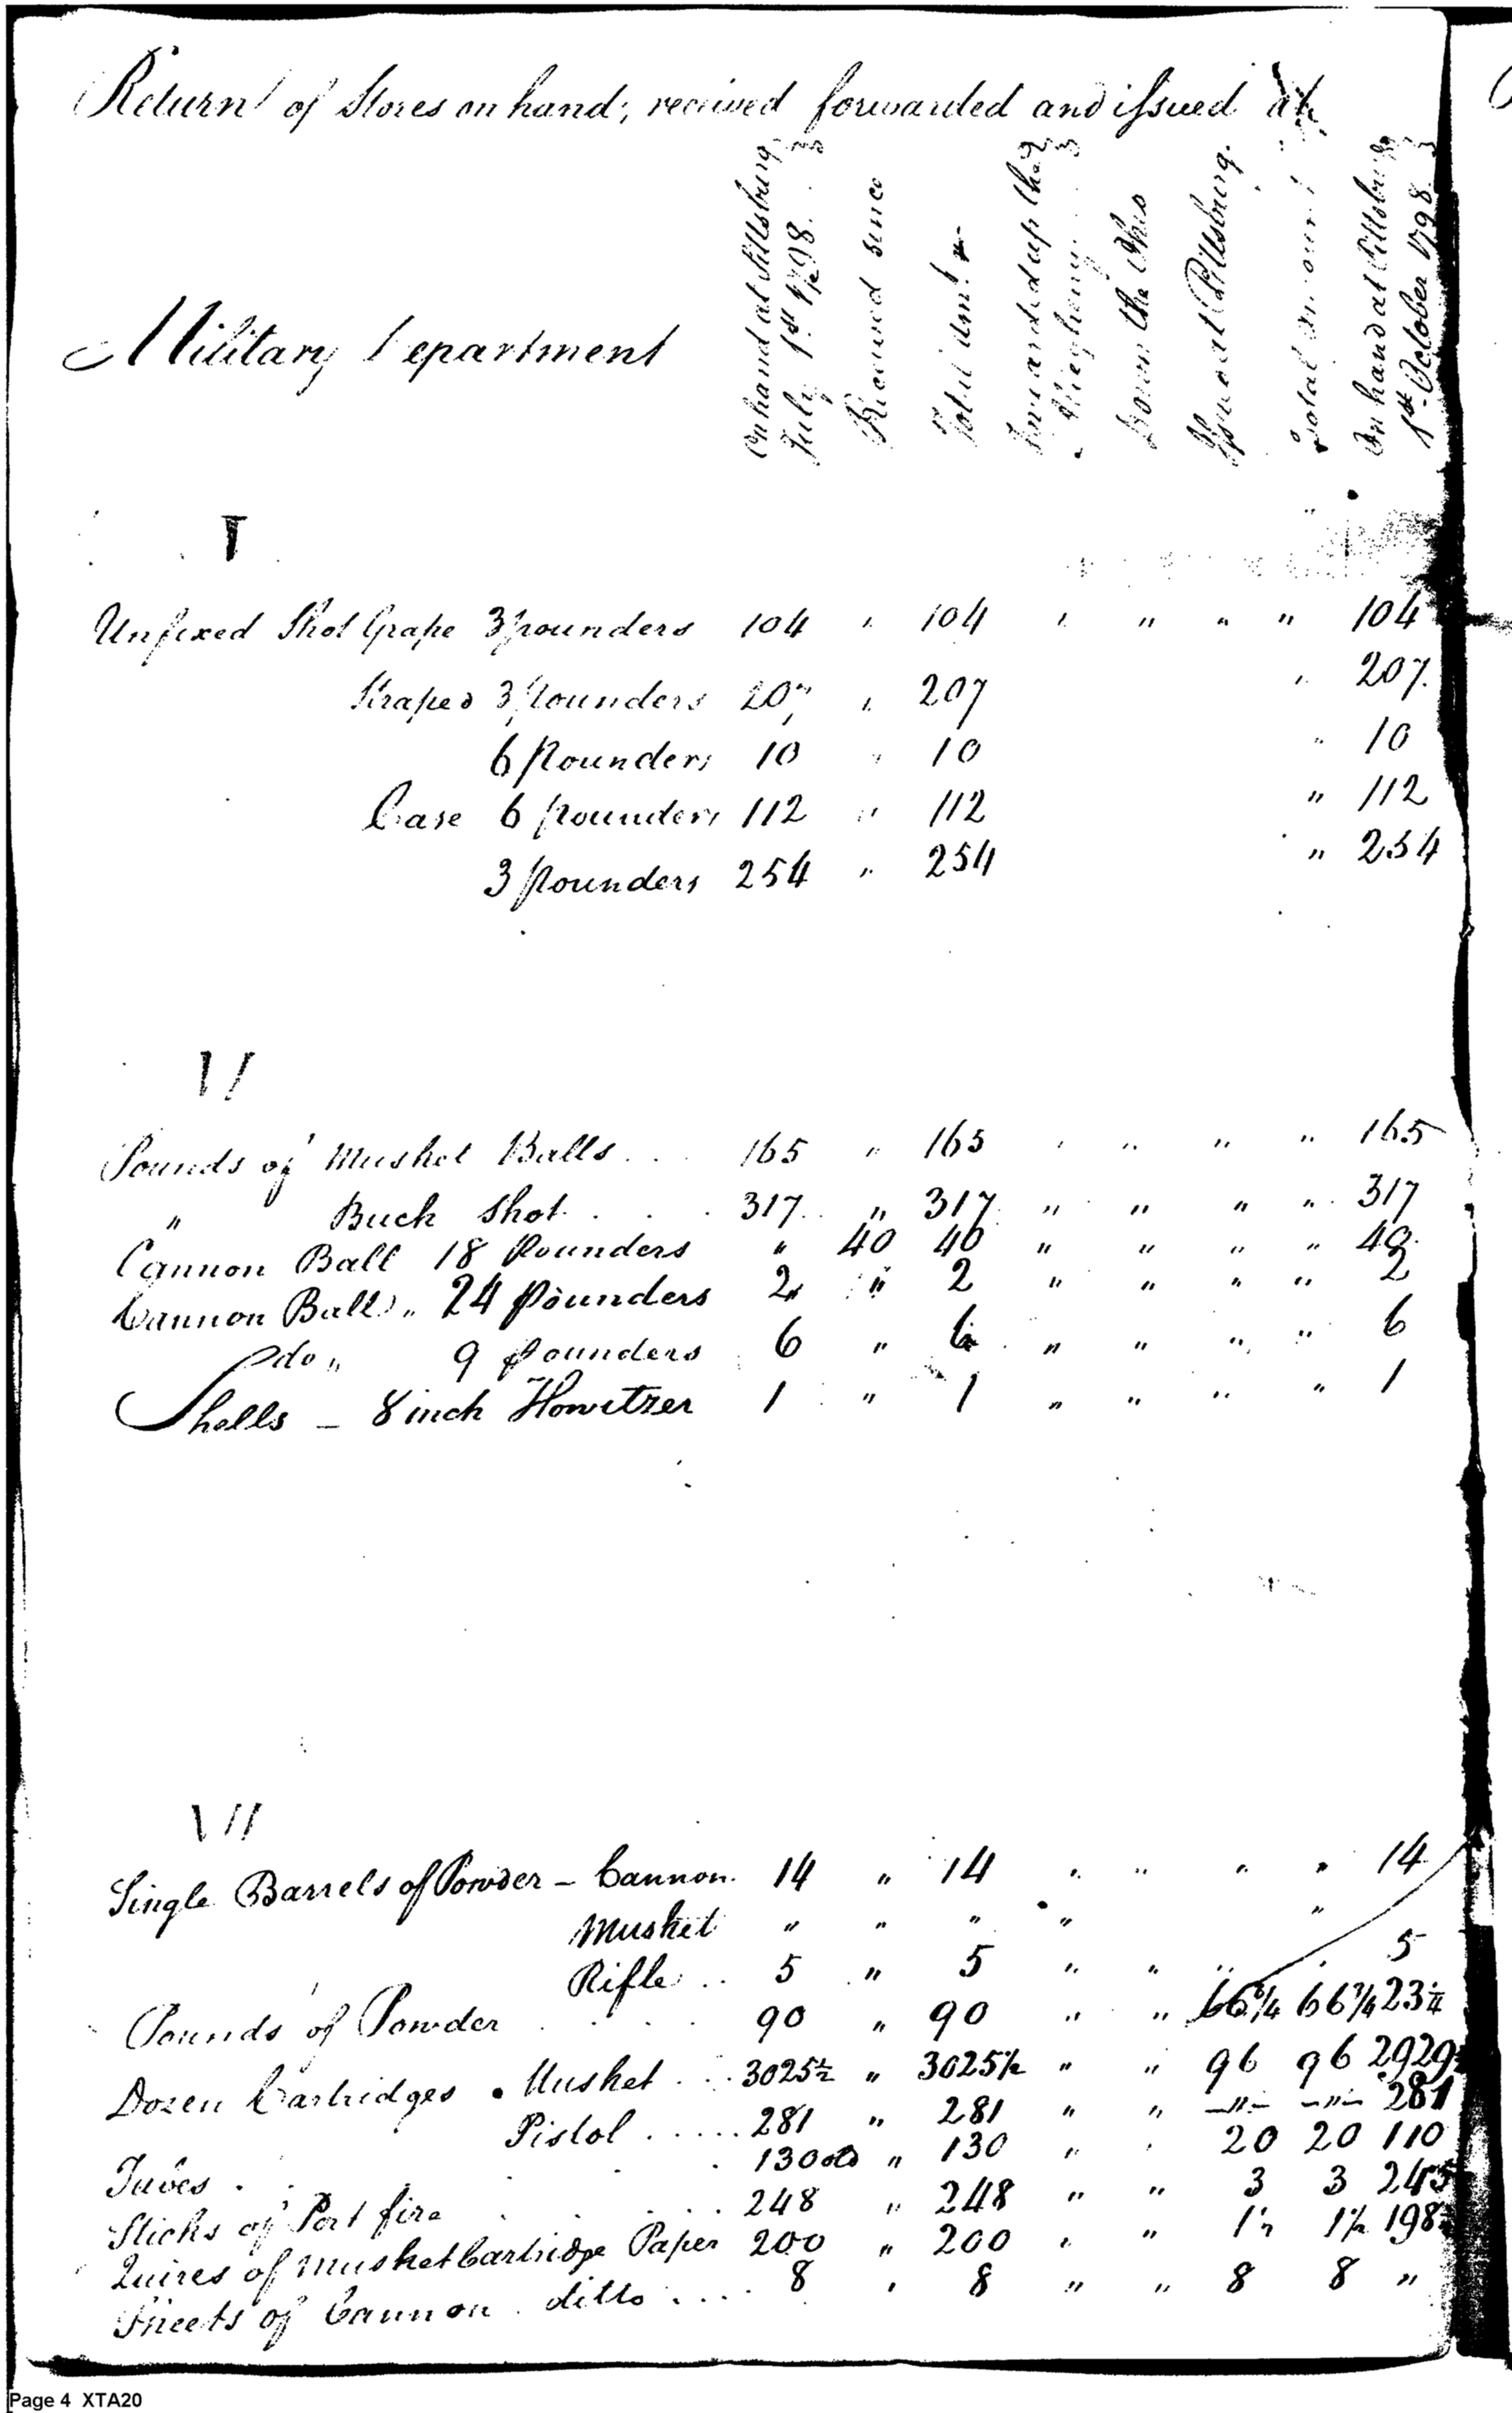 Return of Stores on hand; received forwarded and issued at
Military Department
On hand at Pittsburg
July 1st 1798.
Received since
Total Amt
Forwarded up the
Alleghany
Down the Ohio
Issued at Pittsburg.
Total amount
On hand at Pittsburg
1st October 1798
V
Unfixed Shot Grape 3 pounders 104 " 104 " " " " 104
Straped 3 pounders 207 " 207 " 207
6 Pounders 10 " 10 " 10
Case 6 pounders 112 " 112 " 112
3 Pounders 254 " 254 " 254
VI
Pounds of Musket Balls 165 " 165 " " " " 165
" Buck Shot 317 " 317 " " " " 317
Cannon Ball 18 Pounders " 40 40 " " " " 40
Cannon Ball " 24 Pounders 2 " 2 " " " " 2
do " 9 Pounders 6 " 6 " " " " 6
Shells - 8 inch Howitzer 1 " 1 " " " " 1
VII
Single Barrels of Powder - Cannon 14 " 14 " " " " 14
Musket " " " " "
Rifle 5 " 5 " " " " 5
Pounds of Powder 90 " 90 " " 66 3/4 66 3/4 23 1/4
Dozen Cartridges Musket 3025 1/2 " 3025 1/2 " " 96 96 2929 1/2
Pistol 281 " 281 " " -"- -"- 281
Tubes 130 " 130 " " 20 20 110
Sticks of Port fire 248 " 248 " " 3 3 245
Quires of Musket Cartridge Paper 200 " 200 " " 1 1/2 1 1/2 198 1/2
Sheets of Cannon ditto 8 " 8 " " 8 8 "
Page 4 XTA20